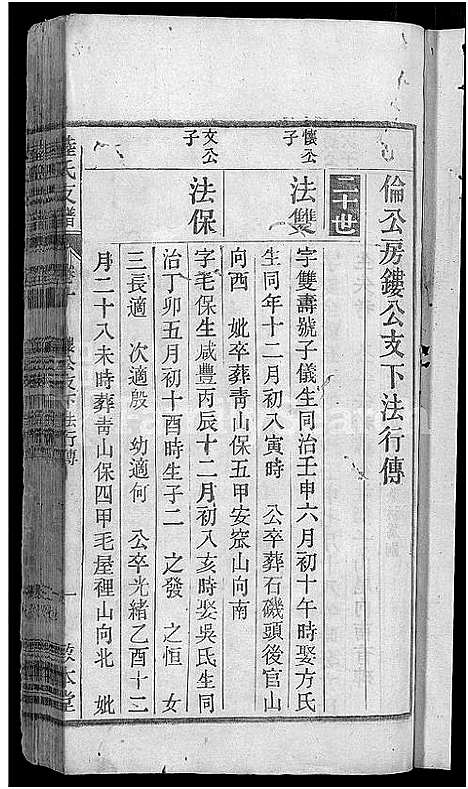 倫公房鏤公支下法行傳
二十世
懷公子
法雙
字雙壽號子儀生同治壬申六月初十午時娶方氏
生同年十二月初八寅時　公卒葬石磯頭後官山
向西　妣卒葬靑山保五甲安窰山向南
文公子
法保
字毛保生咸豐丙辰十二月初八亥時娶吳氏生同
治丁卯五月初十酉時生子二　之發　之恒　女
三長適　次適殷　幼適何　公卒光緒乙酉十二
月二十八未時葬靑山保四甲毛屋裡山向北　妣
陸氏支譜
鏤公支下法行傳
一